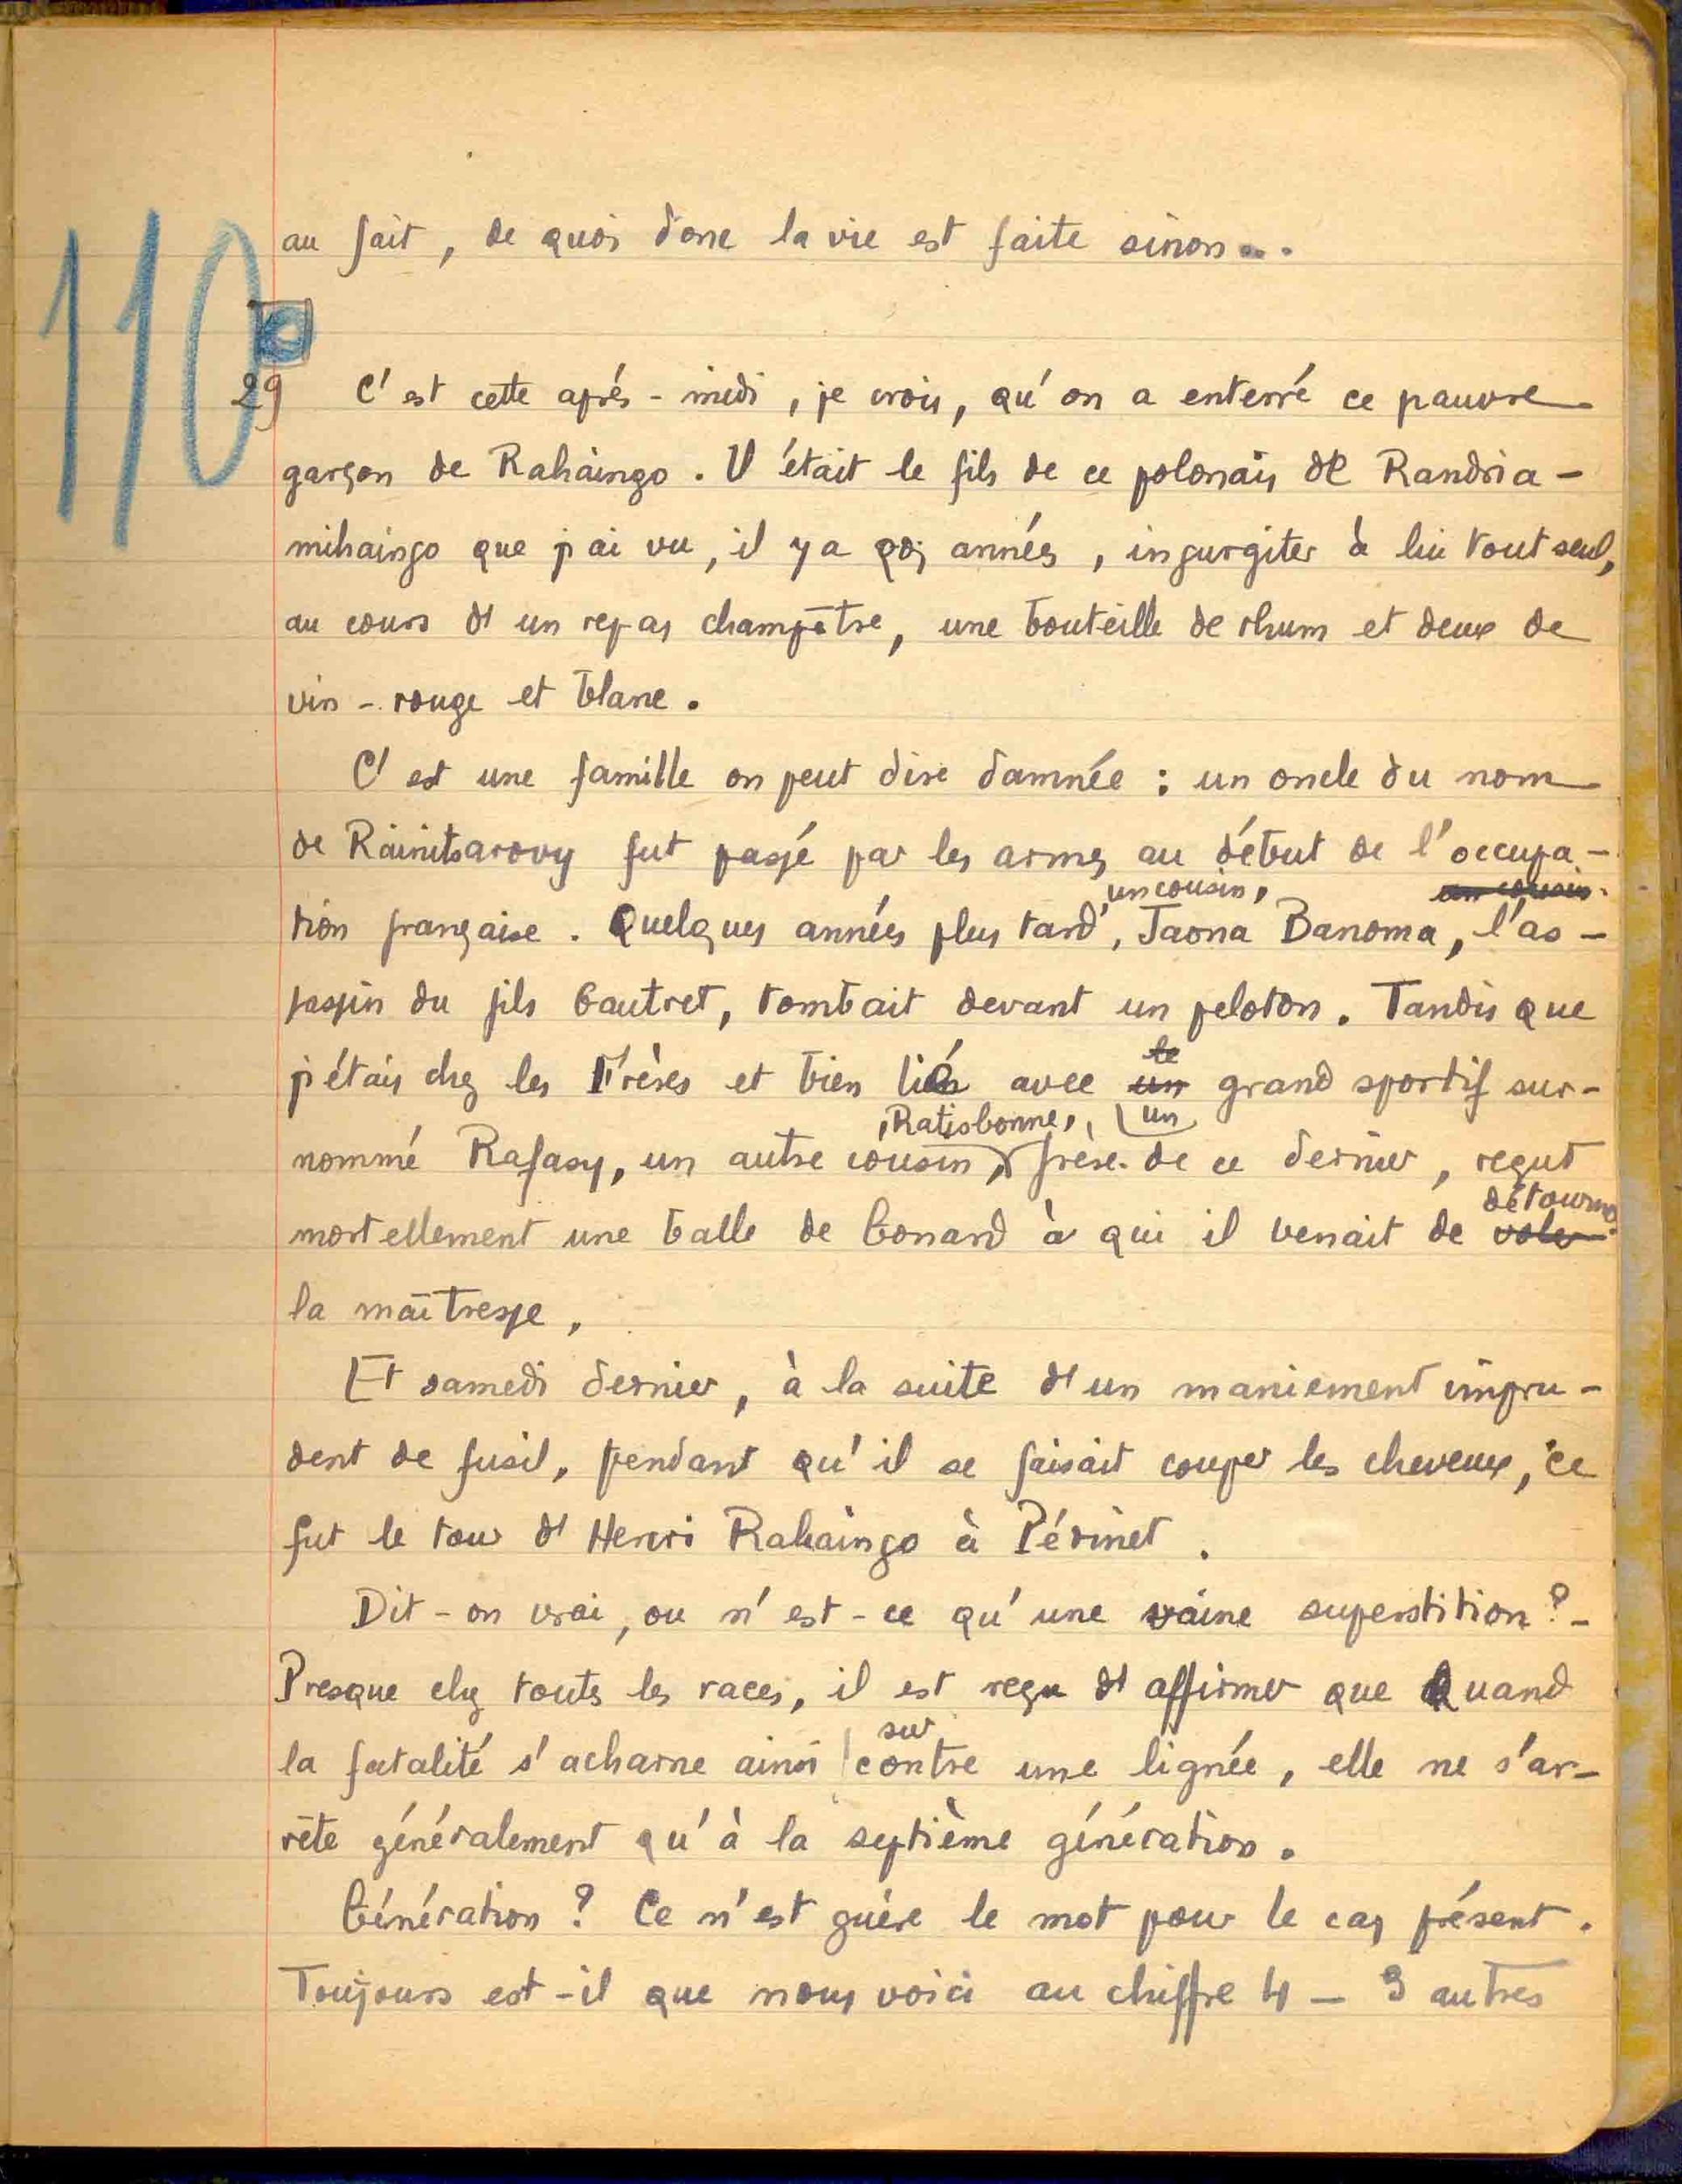 110
au fait, de quoi donc la vie est faite sinon...
29 C'est cette après-midi, je crois, qu'on a enterré ce pauvre
garçon de Rahaingo. Il était le fils de ce polonais de Randria-
mihaingo que j'ai vu, il y a qqs années, ingurgiter à lui tout seul,
au cours d'un repas champêtre, une bouteille de rhum et deux de
vin - rouge et blanc.
C'est une famille on peut dire damnée : un oncle du nom
de Rainitsarovy fut passé par les armes au début de l'occupa-
un cousin, un cousin
tion française. Quelques années plus tard, Jaona Banoma, l'as-
sassin du fils Gautret, tombait devant un peloton. Tandis que
le
j'étais chez les Frères et bien lié avec un grand sportif sur-
, Ratisbonne, un
nommé Rafasy, un autre cousin, frère de ce dernier, reçut
détourner
mortellement une balle de Gonard à qui il venait de voler
la maîtresse.
Et samedi dernier, à la suite d'un maniement impru-
dent de fusil, pendant qu'il se faisait couper les cheveux, ce
fut le tour d'Henri Rahaingo à Périnet.
Dit-on vrai, ou n'est-ce qu'une vaine superstition ? -
Presque chez toutes les races, il est reçu d'affirmer que quand
sur
la fatalité s'acharne ainsi contre une lignée, elle ne s'ar-
rête généralement qu'à la septième génération.
Génération ? Ce n'est guère le mot pour le cas présent.
Toujours est-il que nous voici au chiffre 4 - 3 autres